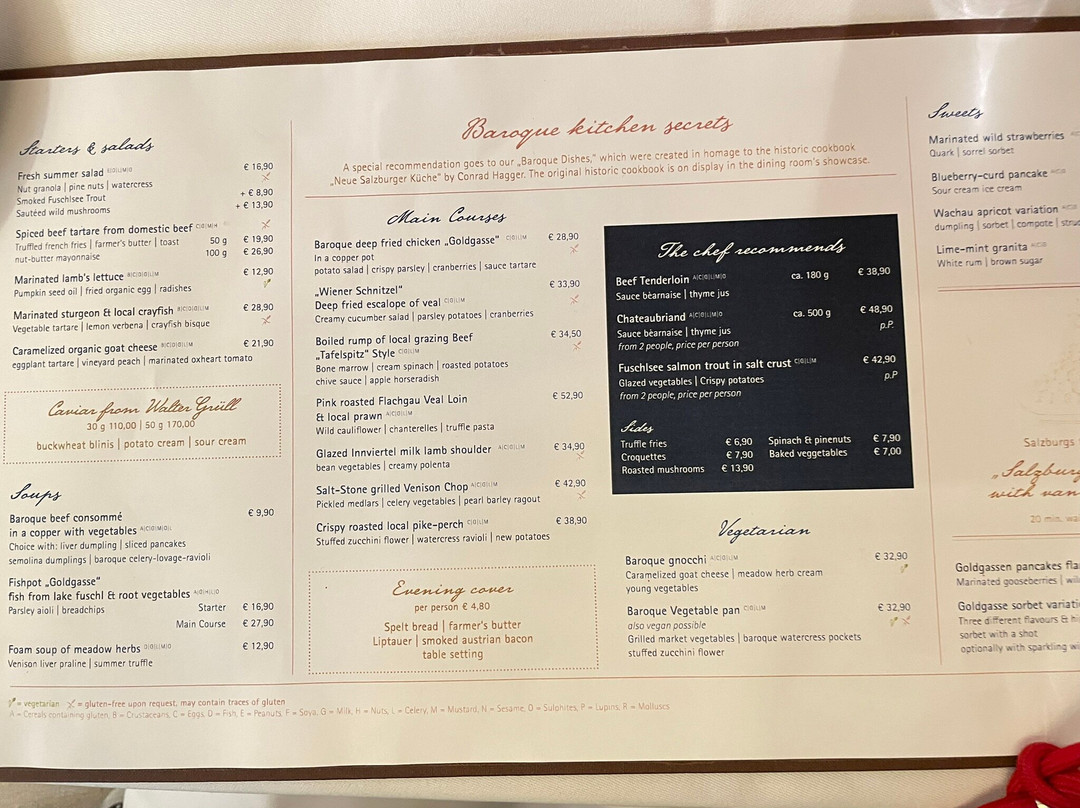 Starters & salads
Fresh summer salad € 16,90
Nut granola | pine nuts | watercress
Smoked Fuschlsee Trout + € 8,90
Sautéed wild mushrooms + € 13,90
Spiced beef tartare from domestic beef
Truffled french fries | farmer's butter | toast 50 g € 19,90
nut-butter mayonnaise 100 g € 26,90
Marinated lamb's lettuce € 12,90
Pumpkin seed oil | fried organic egg | radishes
Marinated sturgeon & local crayfish € 28,90
Vegetable tartare | lemon verbena | crayfish bisque
Caramelized organic goat cheese € 21,90
eggplant tartare | vineyard peach | marinated oxheart tomato
Caviar from Walter Grüll
30 g 110,00 | 50 g 170,00
buckwheat blinis | potato cream | sour cream
Soups
Baroque beef consommé € 9,90
in a copper with vegetables
Choice with: liver dumpling | sliced pancakes
semolina dumplings | baroque celery-lovage-ravioli
Fishpot „Goldgasse"
fish from lake fuschl & root vegetables
Parsley aioli | breadchips Starter € 16,90
Main Course € 27,90
Foam soup of meadow herbs € 12,90
Venison liver praline | summer truffle
Baroque kitchen secrets
A special recommendation goes to our „Baroque Dishes," which were created in homage to the historic cookbook
„Neue Salzburger Küche" by Conrad Hagger. The original historic cookbook is on display in the dining room's showcase.
Main Courses
Baroque deep fried chicken „Goldgasse" C|G|L|M € 28,90
in a copper pot
potato salad | crispy parsley | cranberries | sauce tartare
„Wiener Schnitzel" € 33,90
Deep fried escalope of veal
Creamy cucumber salad | parsley potatoes | cranberries
Boiled rump of local grazing Beef € 34,50
„Tafelspitz" Style
Bone marrow | cream spinach | roasted potatoes
chive sauce | apple horseradish
Pink roasted Flachgau Veal Loin € 52,90
& local prawn
Wild cauliflower | chanterelles | truffle pasta
Glazed Innviertel milk lamb shoulder € 34,90
bean vegetables | creamy polenta
Salt-Stone grilled Venison Chop € 42,90
Pickled medlars | celery vegetables | pearl barley ragout
Crispy roasted local pike-perch € 38,90
Stuffed zucchini flower | watercress ravioli | new potatoes
Evening cover
per person € 4,80
Spelt bread | farmer's butter
Liptauer | smoked austrian bacon
table setting
The chef recommends
Beef Tenderloin ca. 180 g € 38,90
Sauce bèarnaise | thyme jus
Chateaubriand ca. 500 g € 48,90
Sauce bèarnaise | thyme jus p.P.
from 2 people, price per person
Fuschlsee salmon trout in salt crust € 42,90
Glazed vegetables | Crispy potatoes p.P
from 2 people, price per person
Sides
Truffle fries € 6,90 Spinach & pinenuts € 7,90
Croquettes € 7,90 Baked veggetables € 7,00
Roasted mushrooms € 13,90
Vegetarian
Baroque gnocchi € 32,90
Caramelized goat cheese | meadow herb cream
young vegetables
Baroque Vegetable pan € 32,90
also vegan possible
Grilled market vegetables | baroque watercress pockets
stuffed zucchini flower
Sweets
Marinated wild strawberries
Quark | sorrel sorbet
Blueberry-curd pancake
Sour cream ice cream
Wachau apricot variation
dumpling | sorbet | compote |
Lime-mint granita
White rum | brown sugar
Salzburgs
„Salzburg
with van
20 min. wa
Goldgassen pancakes
Marinated gooseberries |
Goldgasse sorbet
Three different flavours &
sorbet with a shot
optionally with sparkling
= vegetarian = gluten-free upon request, may contain traces of gluten
A = Cereals containing gluten, B = Crustaceans, C = Eggs, D = Fish, E = Peanuts, F = Soya, G = Milk, H = Nuts, L = Celery, M = Mustard, N = Sesame, O = Sulphites, P = Lupins, R = Molluscs